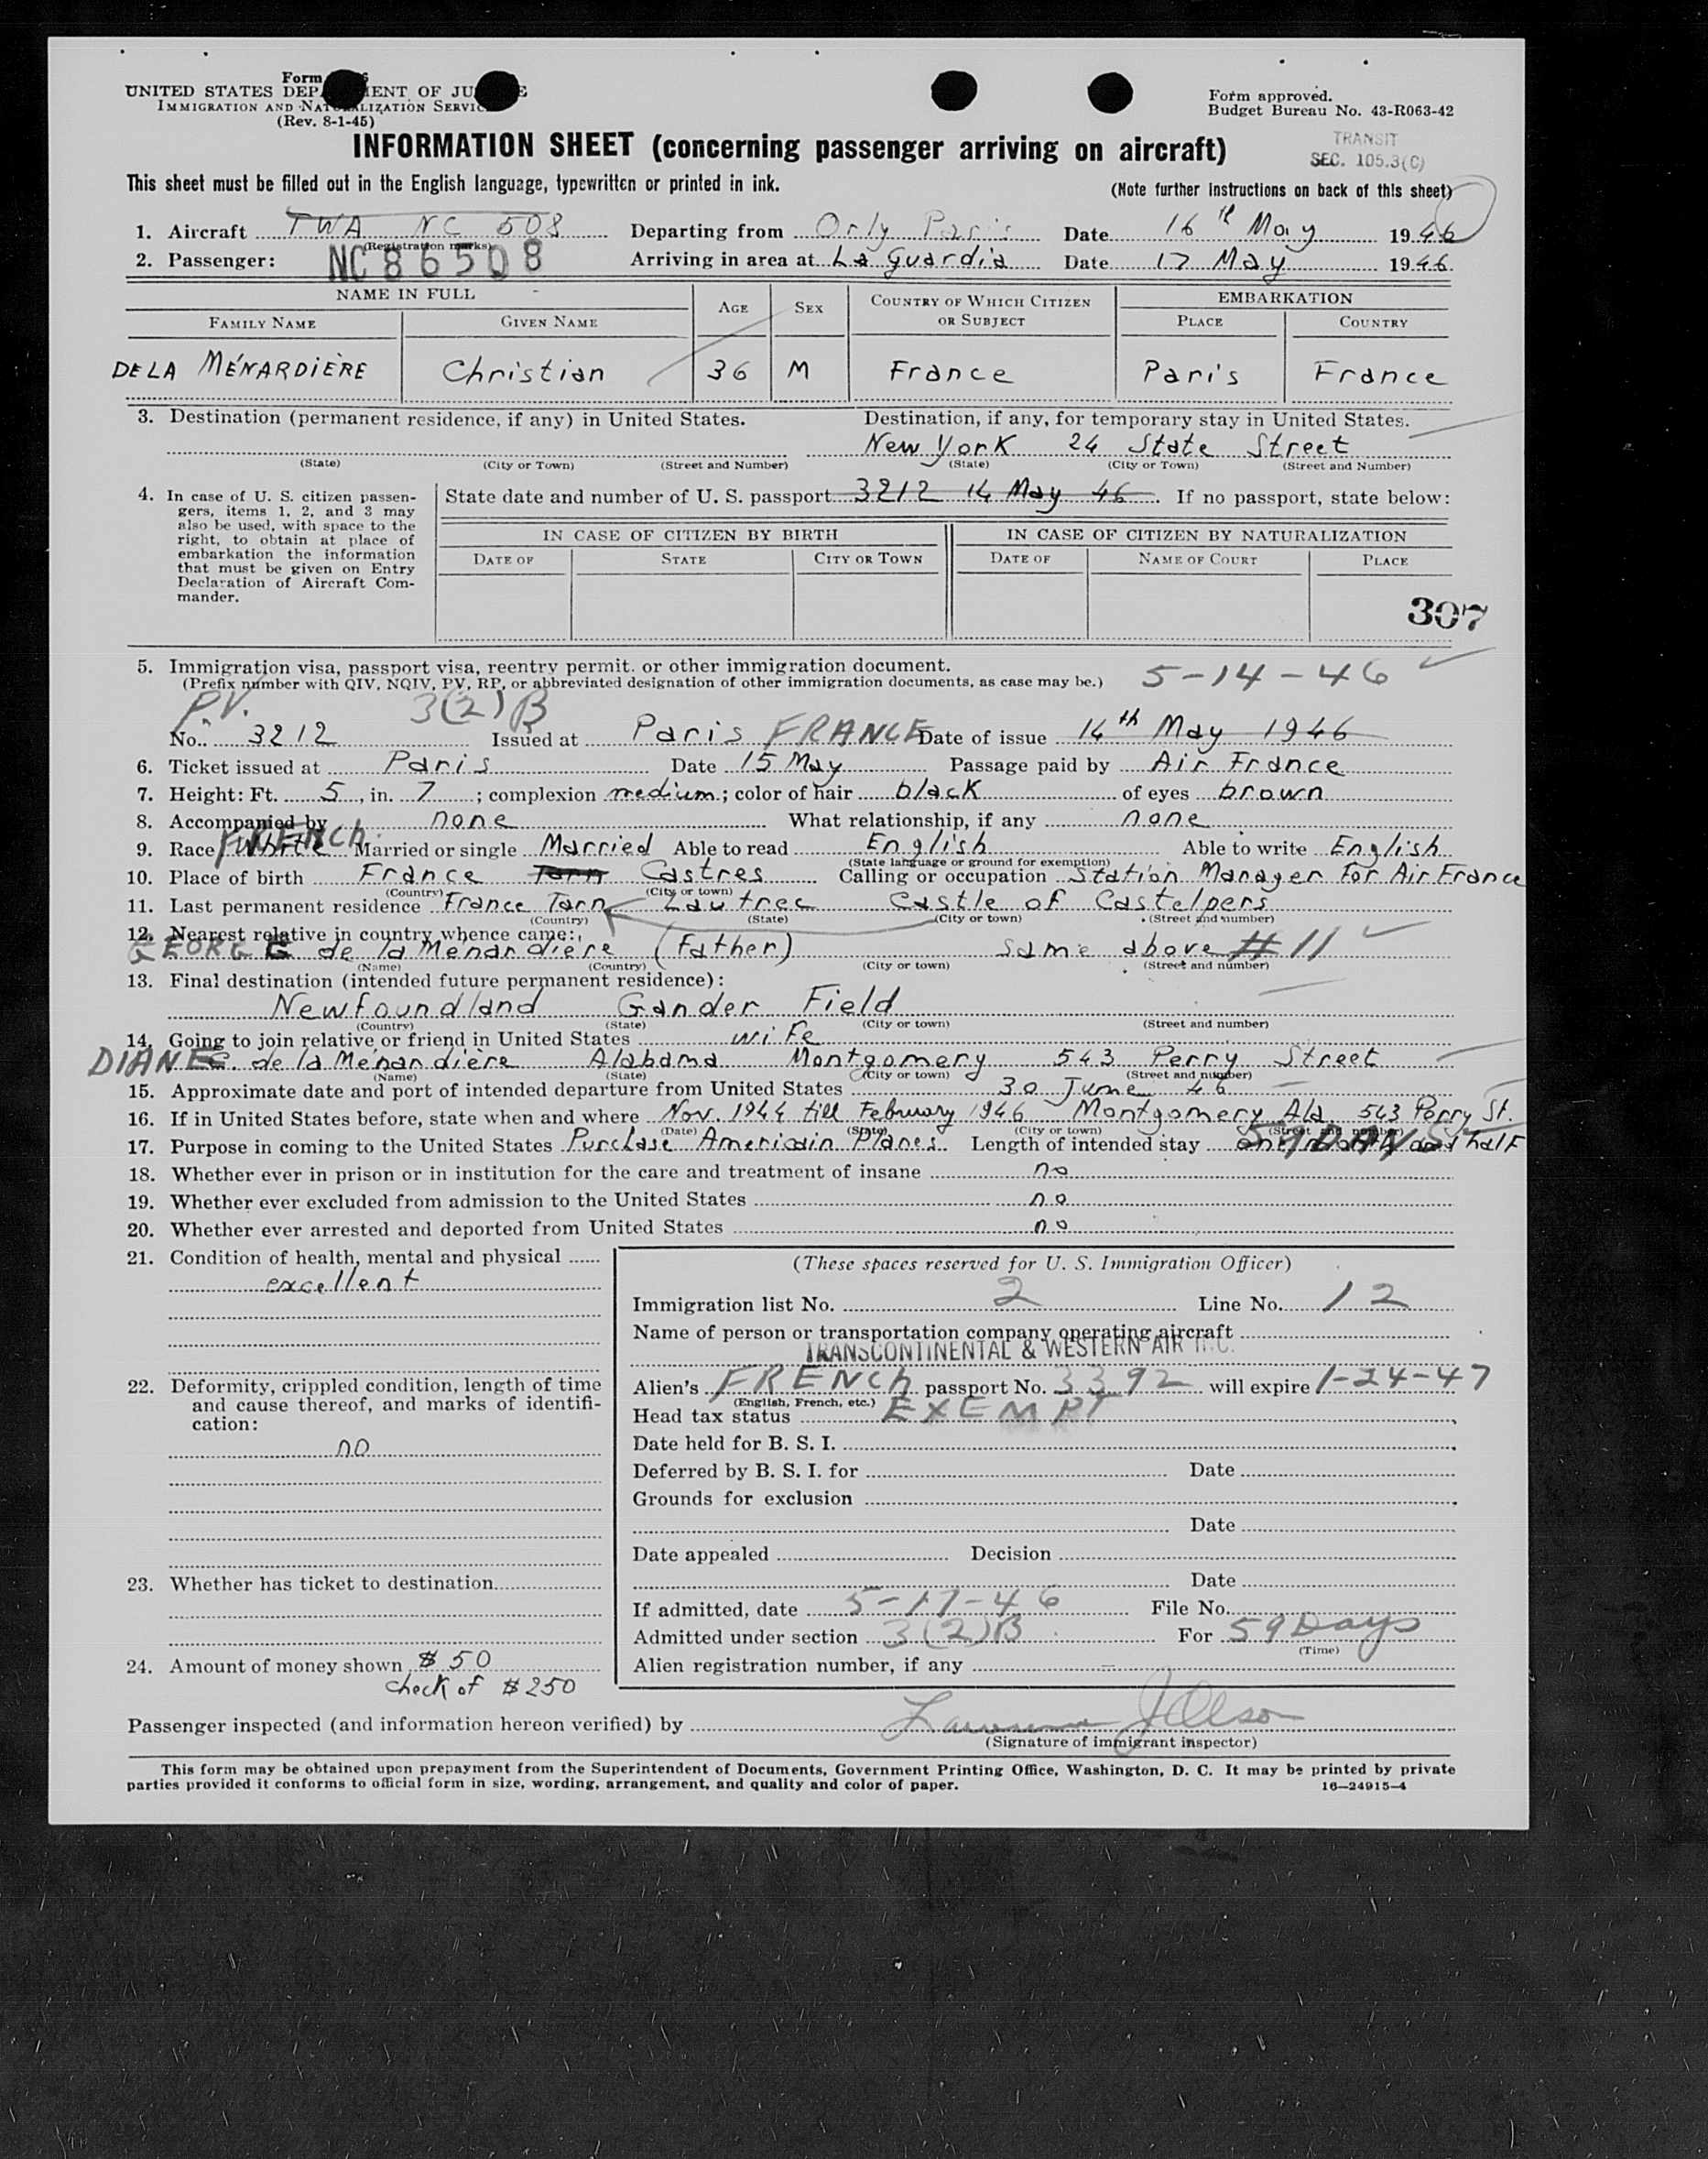 Form
UNITED STATES DEPARTMENT OF JUSTICE
IMMIGRATION AND NATURALIZATION SERVICE
(Rev. 8-1-45)
Form approved.
Budget Bureau No. 43-R063-42
INFORMATION SHEET (concerning passenger arriving on aircraft)
TRANSIT
SEC. 105.3(C)
This sheet must be filled out in the English language, typewritten or printed in ink.
(Note further instructions on back of this sheet)
1. Aircraft TWA NC 508 Departing from Orly Paris Date 16th May 1946
(Registration marks)
2. Passenger: NC 86508 Arriving in area at La Guardia Date 17 May 1946
NAME IN FULL AGE SEX COUNTRY OF WHICH CITIZEN OR SUBJECT EMBARKATION
FAMILY NAME GIVEN NAME PLACE COUNTRY
DE LA MÉNARDIÈRE Christian 36 M France Paris France
3. Destination (permanent residence, if any) in United States. Destination, if any, for temporary stay in United States.
New York 24 State Street
(State) (City or Town) (Street and Number) (State) (City or Town) (Street and Number)
4. In case of U. S. citizen passengers, items 1, 2, and 3 may also be used, with space to the right, to obtain at place of embarkation the information that must be given on Entry Declaration of Aircraft Commander.
State date and number of U. S. passport 3212 14 May 46. If no passport, state below:
IN CASE OF CITIZEN BY BIRTH IN CASE OF CITIZEN BY NATURALIZATION
DATE OF STATE CITY OR TOWN DATE OF NAME OF COURT PLACE
307
5. Immigration visa, passport visa, reentry permit, or other immigration document.
(Prefix number with QIV, NQIV, PV, RP, or abbreviated designation of other immigration documents, as case may be.) 5-14-46
P.V. 3(2)B
No. 3212 Issued at Paris FRANCE Date of issue 14th May 1946
6. Ticket issued at Paris Date 15 May Passage paid by Air France
7. Height: Ft. 5, in. 7; complexion medium; color of hair black of eyes brown
8. Accompanied by none What relationship, if any none
9. Race White FRENCH Married or single Married Able to read English Able to write English
(State language or ground for exemption)
10. Place of birth France Tarn Castres Calling or occupation Station Manager For Air France
(Country) (City or town)
11. Last permanent residence France Tarn Lautrec Castle of Castelpers
(Country) (State) (City or town) (Street and number)
12. Nearest relative in country whence came:
GEORGE G de la Ménardière (Father) same above #11
(Name) (Country) (City or town) (Street and number)
13. Final destination (intended future permanent residence):
Newfoundland Gander Field
(Country) (State) (City or town) (Street and number)
14. Going to join relative or friend in United States wife
DIANE C. de la Ménardière Alabama Montgomery 543 Perry Street
(Name) (State) (City or town) (Street and number)
15. Approximate date and port of intended departure from United States 30 June 46
16. If in United States before, state when and where Nov. 1944 till February 1946 Montgomery Ala 543 Perry St.
(Date) (State) (City or town) (Street and number)
17. Purpose in coming to the United States Purchase Americain Planes Length of intended stay one month and half 59 DAYS
18. Whether ever in prison or in institution for the care and treatment of insane no
19. Whether ever excluded from admission to the United States no
20. Whether ever arrested and deported from United States no
21. Condition of health, mental and physical
excellent
22. Deformity, crippled condition, length of time and cause thereof, and marks of identification:
no
23. Whether has ticket to destination
24. Amount of money shown $50
check of $250
(These spaces reserved for U. S. Immigration Officer)
Immigration list No. 2 Line No. 12
Name of person or transportation company operating aircraft
TRANSCONTINENTAL & WESTERN AIR INC.
Alien's FRENCH passport No. 3392 will expire 1-24-47
(English, French, etc.)
Head tax status EXEMPT
Date held for B. S. I.
Deferred by B. S. I. for Date
Grounds for exclusion
Date
Date appealed Decision
Date
If admitted, date 5-17-46 File No.
Admitted under section 3(2)B For 59 Days
(Time)
Alien registration number, if any
Passenger inspected (and information hereon verified) by
(Signature of immigrant inspector)
This form may be obtained upon prepayment from the Superintendent of Documents, Government Printing Office, Washington, D. C. It may be printed by private
parties provided it conforms to official form in size, wording, arrangement, and quality and color of paper. 16—24915-4